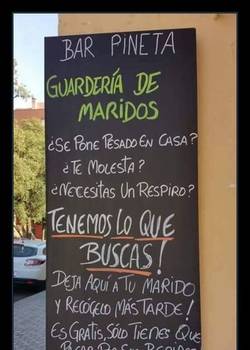 BAR PINETA
GUARDERÍA DE
MARIDOS
¿SE PONE PESADO EN CASA?
¿TE MOLESTA?
¿NECESITAS UN RESPIRO?
TENEMOS LO QUE
BUSCAS!
DEJA AQUÍ A TU MARIDO
Y RECÓGELO MÁS TARDE!
ES GRÁTIS, SÓLO TIENES QUE